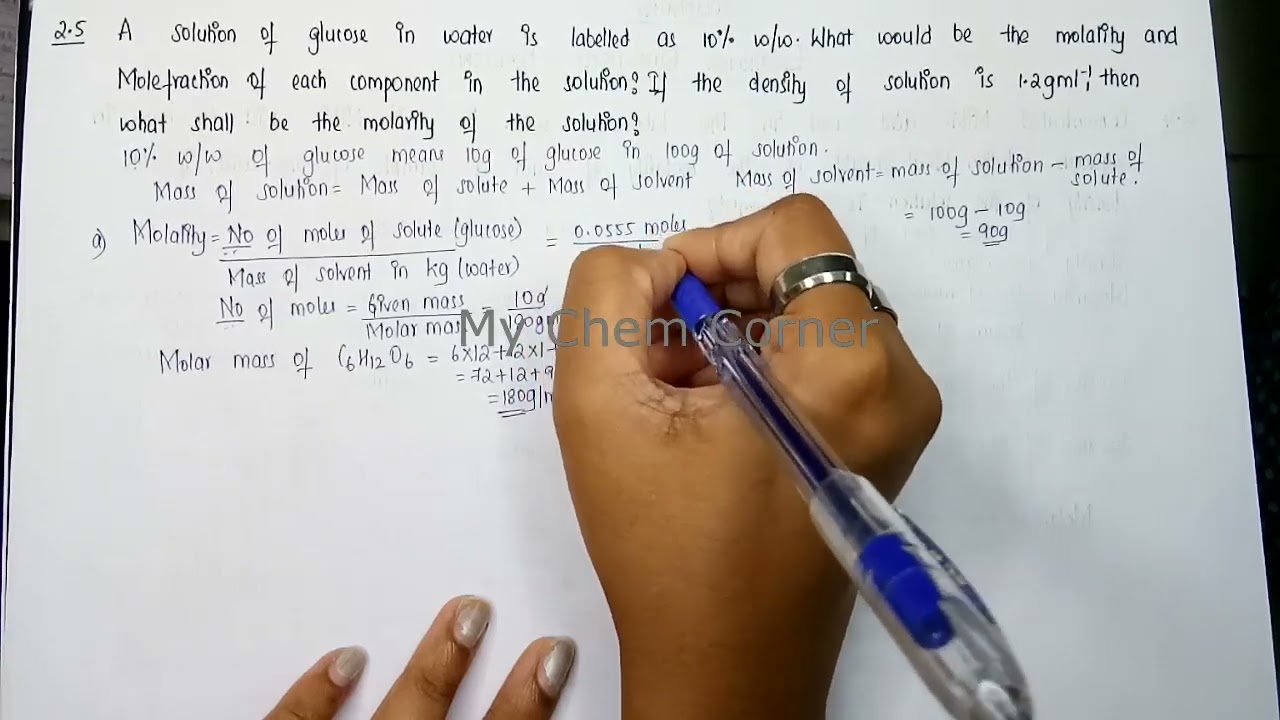 2.5 A solution of glucose in water is labelled as 10% w/w. What would be the molality and
Molefraction of each component in the solution? If the density of solution is 1.2gml⁻¹, then
what shall be the molarity of the solution?
10% w/w of glucose means 10g of glucose in 100g of solution.
Mass of solution = Mass of solute + Mass of solvent Mass of solvent = mass of solution - mass of solute.
= 100g - 10g
= 90g
a) Molality = No of moles of solute (glucose) = 0.0555 moles
Mass of solvent in kg (water)
No of moles = Given mass = 10g
Molar mass
Molar mass of C6H12O6 = 6x12+12x1+
= 72+12+9
= 180g/
My Chem Corner